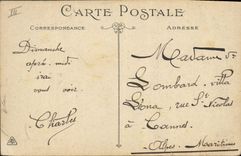 III
CARTE POSTALE
CORRESPONDANCE
ADRESSE
Dimanche
après-midi
irai
vous voir.
Charles
Madame Vve
Lombard. villa
Léna, rue St Nicolas
à Cannes
Alpes-Maritimes